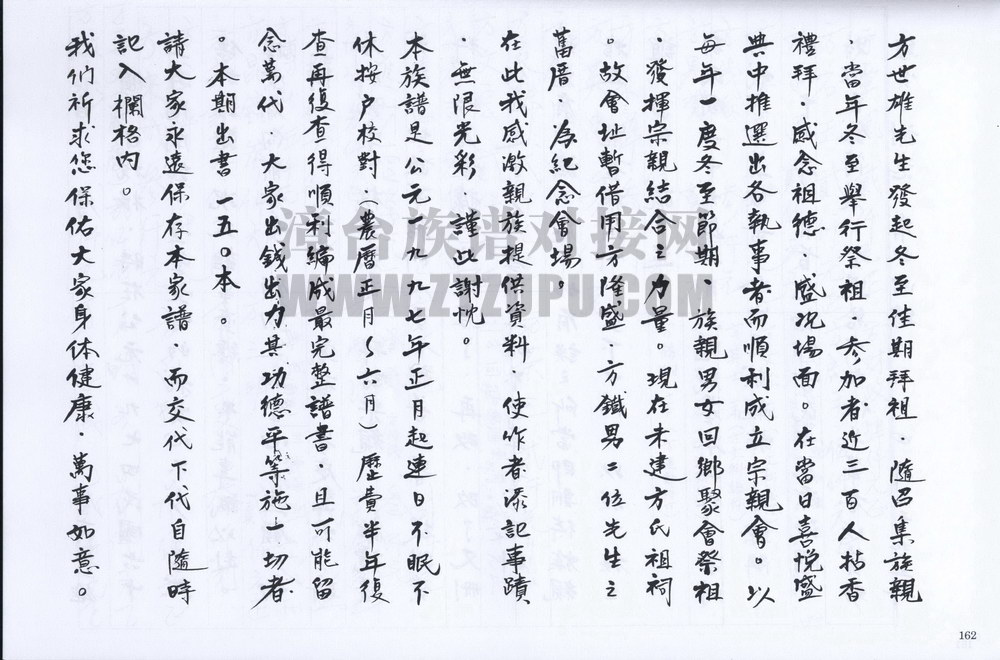 方世雄先生發起冬至佳期拜祖．隨召集族親
．當年冬至舉行祭祖參加者近三百人拈香
禮拜．感念祖德．盛況場面。在當日喜悅盛
典中推選出各執事者而順利成立宗親會。以
每年一度冬至節期、族親男女回鄉聚會祭祖
．發揮宗親結合之力量。現在未建方氏祖祠
。故會址暫借用方隆盛．方鐵男二位先生之
舊厝 為紀念會場。
在此我感激親族提供資料．使作者添記事蹟
．無限光彩．謹此謝忱。
本族譜是公元一九九七年正月起連日不眠不
休按户校對（農曆正月～六月）歷費半年復
查再復查得順利編成最完整譜書．且可能留
念萬代．大家出錢出力其功德平等施一切者
。本期出書一五〇本。
請大家永遠保存本家譜．而交代下代自隨時
記入欄格内。
我們祈求您保佑大家身体健康．萬事如意。
漳台族谱对接网
WWW.ZTZUPU.COM
162